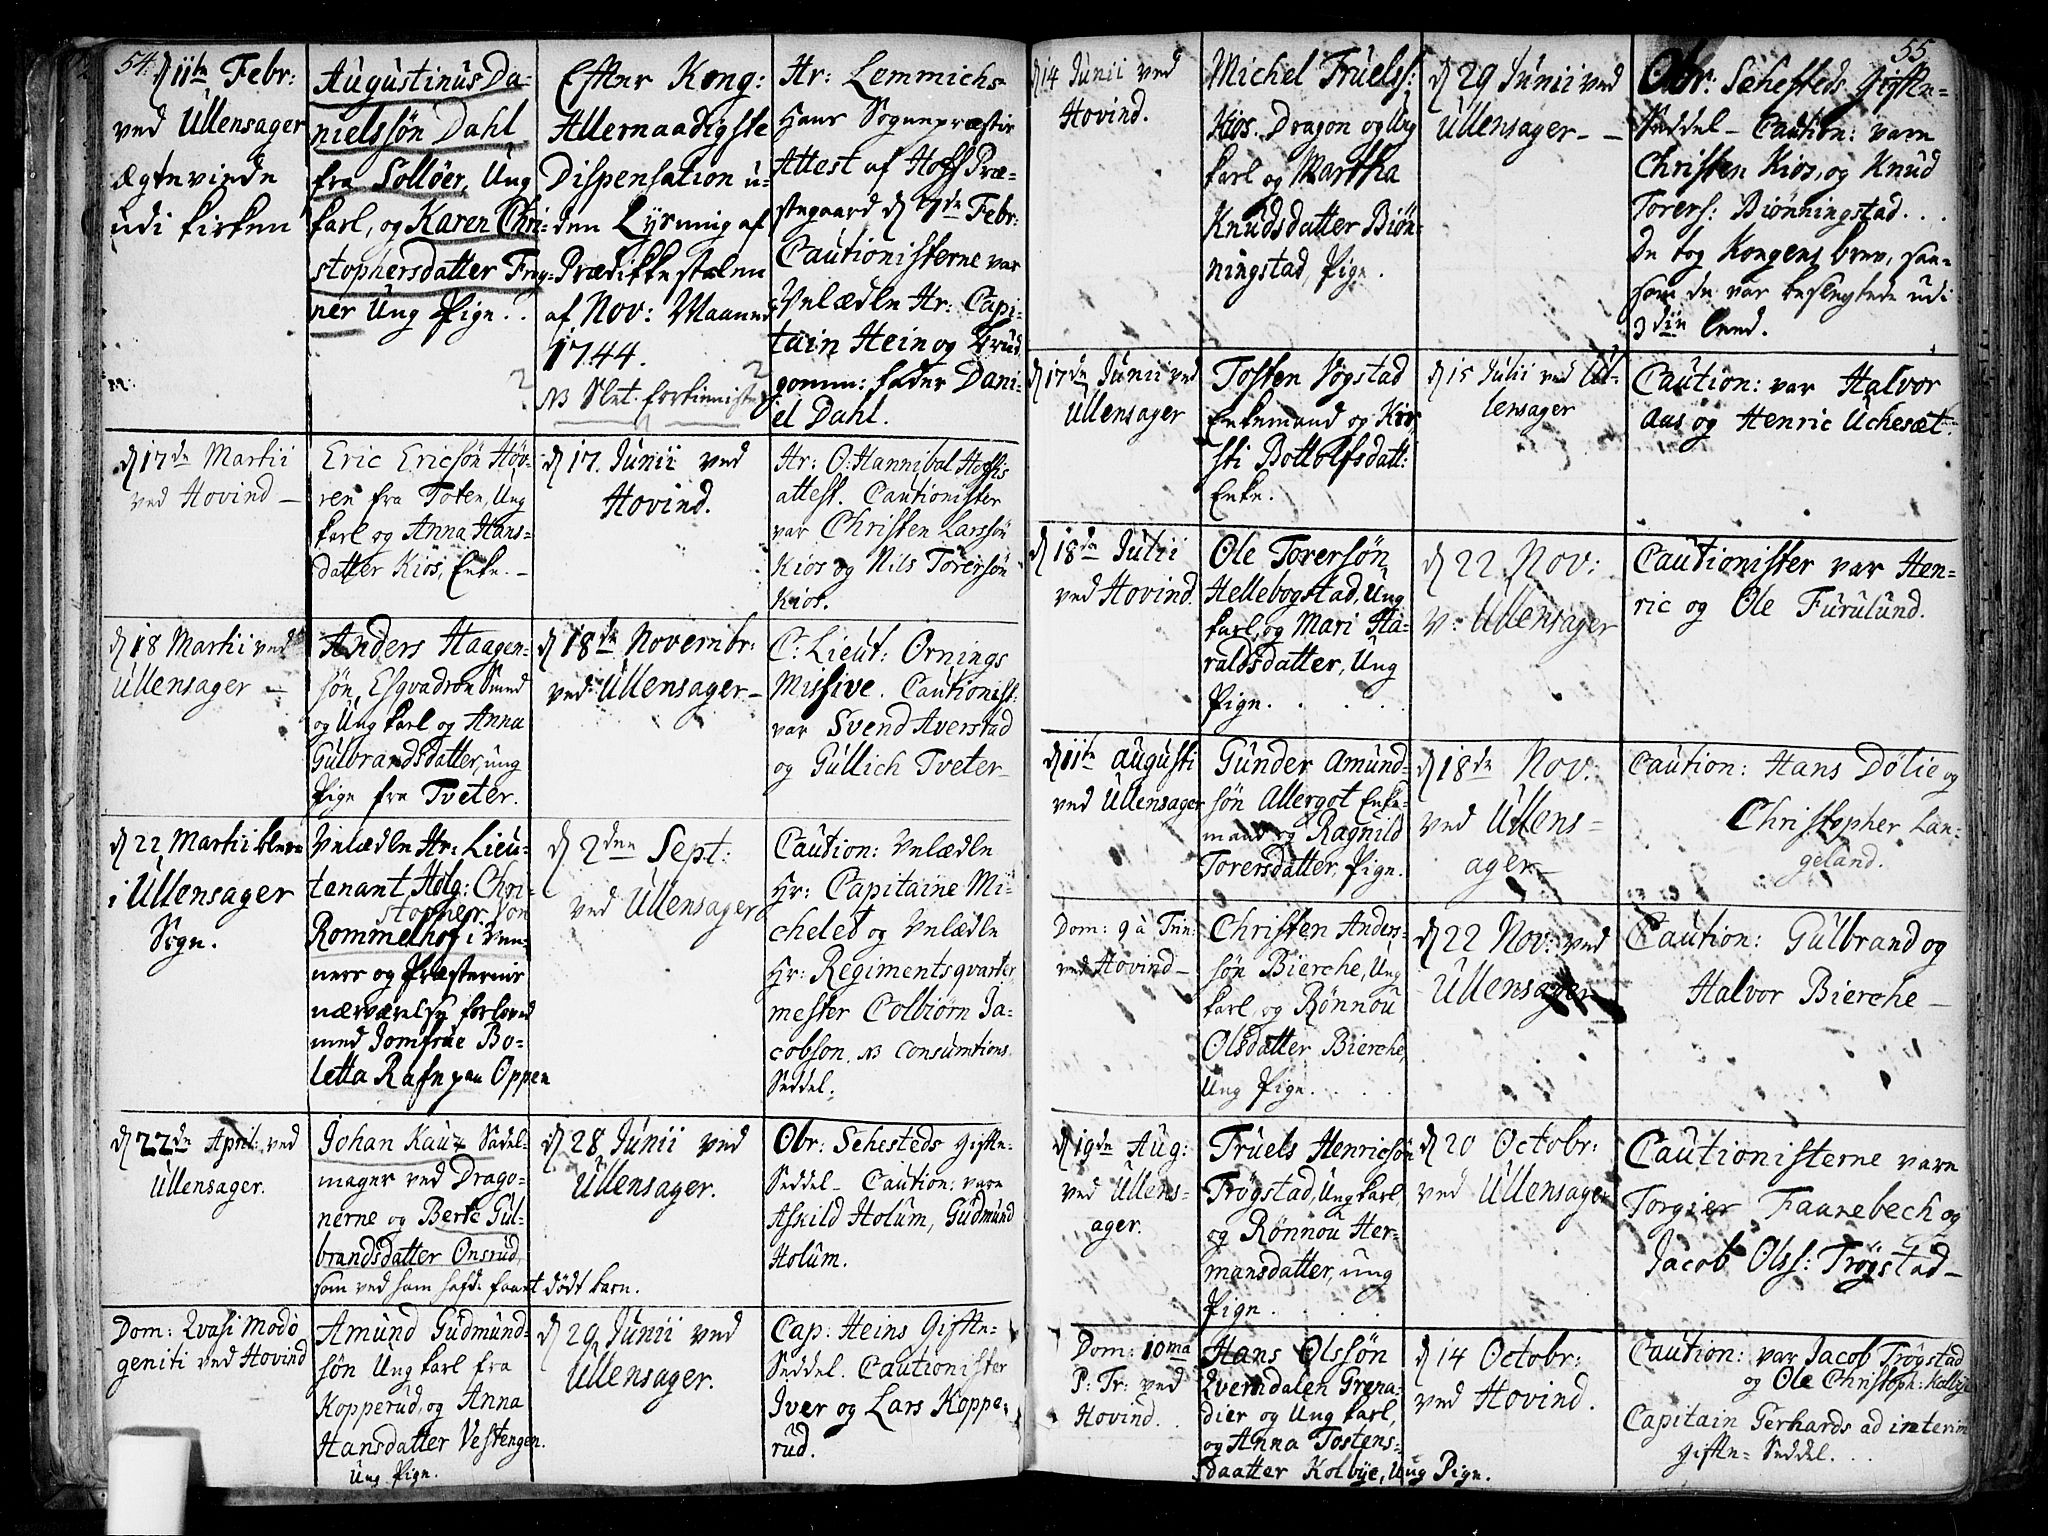 54.
d 11te Febr:
ved Ullensager
ægteviede
udi kirken
Augustinus Da-
nielssøn Dahl
fra Solløer, Ung
karl, og Karen Chri-
stophersdatter Frey-
ner Ung Pige.
Efter Kong:
Allernaadigste
Dispensation u-
den Lysning af
Prædikkestolen
af Nov: Maaned
1744.
NB Slet
Hr: Lemmichs
Hans Sognepræstis
Attest af Hoff Præ-
stegaard d 7de Febr:
Cautionisterne var
Velædle Hr: Capi-
tain Hein og Brud
gomm: fader Dani-
el Dahl.
d 17de Martii
ved Hovind –
Eric Ericsøn Høv-
ren fra Toten, Ung
karl og Anna Hans-
datter Kios, Enke. –
d 17. Junii ved
Hovind.
Hr: O: Hannibal Hoffs
attest. Cautionister
var Christen Larssøn
Kios og Nils Torersøn
Kios.
d 18 Martii ved
Ullensager –
Anders Haagen-
søn, Esqvadron Smed
og Ung karl og Anna
Gulbrandsdatter, ung
Pige fra Tveter.
d 18de Novembr:
ved Ullensager –
C: Lieut: Ornings
Missive. Cautionist:
var Svend Averstad
og Gullich Tveter –
d 22 Martii bleve
i Ullensager
Sogn.
Velædle Hr: Lieu-
tenant Holg: Chri-
stopher von
Rommelhof i Ven-
ners og Præsternis
nærværelse forlovet
med Jomfrue Bo-
letta Rafn paa Oppen
d 2den Sept:
ved Ullensager
Caution: Velædle
Hr: Capitaine Mi-
chelet og Velædle
Hr: Regimentsqvarter
mester Colbiørn Ja-
cobson. NB Consumtions
Seddel.
d 22de April: ved
Ullensager.
Johan Kauz Sadel-
mager ved Drago-
nerne og Berte Gul-
brandsdatter Onsrud,
som ved ham hafde faaet dødt barn.
d 28 Junii ved
Ullensager.
Obr: Sehesteds Gifte-
Seddel – Caution: vare
Askild Holum, Gudmund
Holum.
Dom: Qvasi Modo
geniti ved Hovind
Amund Gudmund-
søn Ung karl fra
Kopperud, og Anna
Hansdatter Vestengen.
Ung Pige.
d 29 Junii ved
Ullensager.
Cap: Heins Gifte-
Seddel. Cautionister
Iver og Lars Koppe-
rud.
55
d 14 Junii ved
Hovind.
Michel Truelss:
Kios. Dragon og Ung
karl og Martha
Knudsdatter Biøn-
ningstad, Pige.
d 29 Junii ved
Ullensager – –
Obr: Sehesteds Gifte-
Seddel – Caution: vare
Christen Kios, og Knud
Torers: Biønningstad. . .
De tog Kongens brev, saa-
som de var beslegtede udi
3die leed.
d 17de Junii ved
Ullensager
Tosten Vogstad
Enkemand og Kir
sti Bottolfsdatt:
Enke.
d 15 Julii ved Ul-
lensager
Caution: var Halvor
Aas og Henric Uchesæt.
d 18de Julii
ved Hovind.
Ole Torersøn
Hellebogstad, Ung
karl, og Mari Ha-
raldsdatter, Ung
Pige.
d 22 Nov:
v: Ullensager
Cautionister var Hen-
ric og Ole Furulund.
d 11te Augusti
ved Ullensager
Gunder Amund-
søn Allergot Enke-
mand og Ragnild
Torersdatter, Pige.
d 18de Nov:
ved Ullens-
ager –
Caution: Hans Dølie og
Christopher Lan-
geland.
Dom: 9 à Trin:
ved Hovind –
Christen Anders-
søn Bierche, Ung
karl, og Rønnou
Olsdatter Bierche,
Ung Pige. . . .
d 22 Nov: ved
Ullensager
Caution: Gulbrand og
Halvor Bierche –
d 19de Aug:
ved Ullens-
ager.
Truels Henricsøn
Trøgstad, Ung karl,
og Rønnou Her-
mansdatter, ung
Pige. . .
d 20 Octobr:
ved Ullensager
Cautionisterne vare
Torgier Faanebech og
Jacob Olss: Trøgstad –
Dom: 10ma
P: Tr: ved
Hovind.
Hans Olssøn
Qverndalen Grena-
dier og Ung karl,
og Anna Tostens-
daatter Kolbye, Ung Pige.
d 14 Octobr:
ved Hovind.
Caution: var Jacob Trøgstad
og Ole Christoph: Kolbye
Capitain Gerhards ad interim
Gifte-Seddel. . .